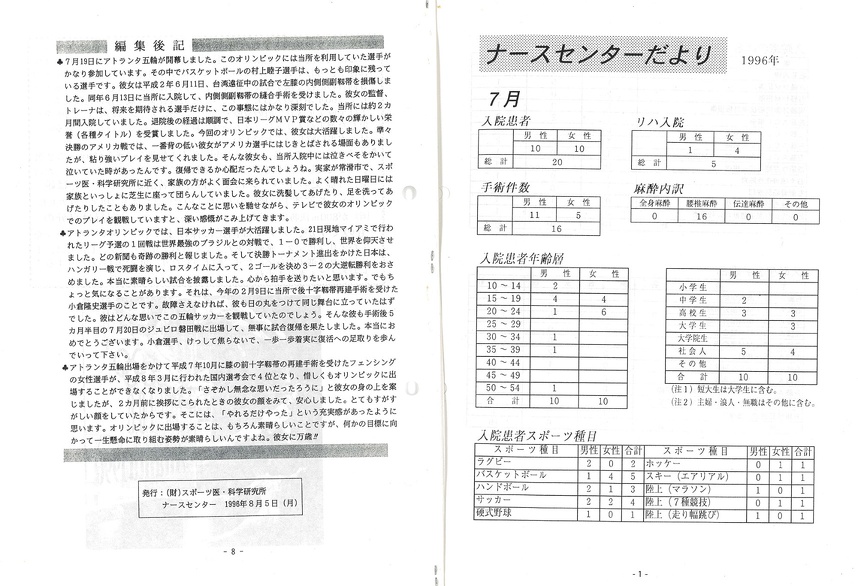 編集後記
♣７月19日にアトランタ五輪が開幕しました。このオリンピックには当所を利用していた選手が
かなり参加しています。その中でバスケットボールの村上睦子選手は、もっとも印象に残って
いる選手です。彼女は平成２年６月11日、台湾遠征中の試合で左膝の内側側副靱帯を損傷しま
した。同年６月13日に当所に入院して、内側側副靱帯の縫合手術を受けました。彼女の監督、
トレーナは、将来を期待される選手だけに、この事態にはかなり深刻でした。当所には約２カ
月間入院していました。退院後の経過は順調で、日本リーグＭＶＰ賞などの数々の輝かしい栄
誉（各種タイトル）を受賞しました。今回のオリンピックでは、彼女は大活躍しました。準々
決勝のアメリカ戦では、一番背の低い彼女がアメリカ選手にはじきとばされる場面もありまし
たが、粘り強いプレイを見せてくれました。そんな彼女も、当所入院中には泣きべそをかいて
泣いていた時があったんです。復帰できるか心配だったんでしょうね。実家が常滑市で、スポ
ーツ医・科学研究所に近く、家族の方がよく面会に来られていました。よく晴れた日曜日には
家族といっしょに芝生に座って団らんしていました。彼女に洗髪してあげたり、足を洗ってあ
げたりしたこともありました。こんなことに思いを馳せながら、テレビで彼女のオリンピック
でのプレイを観戦していますと、深い感慨がこみ上げてきます。
♣アトランタオリンピックでは、日本サッカー選手が大活躍しました。21日現地マイアミで行わ
れたリーグ予選の１回戦は世界最強のブラジルとの対戦で、１－０で勝利し、世界を仰天させ
ました。どの新聞も奇跡の勝利と報じました。そして決勝トーナメント進出をかけた日本は、
ハンガリー戦で死闘を演じ、ロスタイムに入って、２ゴールを決め３－２の大逆転勝利をおさ
めました。本当に素晴らしい試合を披露しました。心から拍手を送りたいと思います。でもち
ょっと気になることがあります。それは、今年の２月９日に当所で後十字靱帯再建手術を受けた
小倉隆史選手のことです。故障さえなければ、彼も日の丸をつけて同じ舞台に立っていたはず
でした。彼はどんな思いでこの五輪サッカーを観戦していたのでしょう。そんな彼も手術後５
カ月半目の７月20日のジュビロ磐田戦に出場して、無事に試合復帰を果たしました。本当にお
めでとうございます。小倉選手、けっして焦らないで、一歩一歩着実に復活への足取りを歩ん
でいって下さい。
♣アトランタ五輪出場をかけて平成７年10月に膝の前十字靱帯の再建手術を受けたフェンシング
の女性選手が、平成８年３月に行われた国内選考会で４位となり、惜しくもオリンピックに出
場することができなくなりました。「さぞかし無念な思いだったろうに」と彼女の身の上を案
じましたが、２カ月前に挨拶にこられたときの彼女の顔をみて、安心しました。とてもすがす
がしい顔をしていたからです。そこには、「やれるだけやった」という充実感があったように
思います。オリンピックに出場することは、もちろん素晴らしいことですが、何かの目標に向
かって一生懸命に取り組む姿勢が素晴らしいんですよね。彼女に万歳!!
発行：（財）スポーツ医・科学研究所
ナースセンター　1996年８月５日（月）
- 8 -
ナースセンターだより　1996年
７月
入院患者
男性　女性
10　10
総計　20
リハ入院
男性　女性
1　4
総計　5
手術件数
男性　女性
11　5
総計　16
麻酔内訳
全身麻酔　腰椎麻酔　伝達麻酔　その他
0　16　0　0
入院患者年齢層
男性　女性
10～14　2
15～19　4　4
20～24　1　6
25～29
30～34　1
35～39　1
40～44
45～49
50～54　1
合計　10　10
男性　女性
小学生
中学生　2
高校生　3　3
大学生　3
大学院生
社会人　5　4
その他
合計　10　10
（注１）短大生は大学生に含む。
（注２）主婦・浪人・無職はその他に含む。
入院患者スポーツ種目
スポーツ種目　男性　女性　合計　スポーツ種目　男性　女性　合計
ラグビー　2　0　2　ホッケー　0　1　1
バスケットボール　1　4　5　スキー（エアリアル）　0　1　1
ハンドボール　2　1　3　陸上（マラソン）　1　0　1
サッカー　2　2　4　陸上（７種競技）　0　1　1
硬式野球　1　0　1　陸上（走り幅跳び）　1　0　1
- 1 -